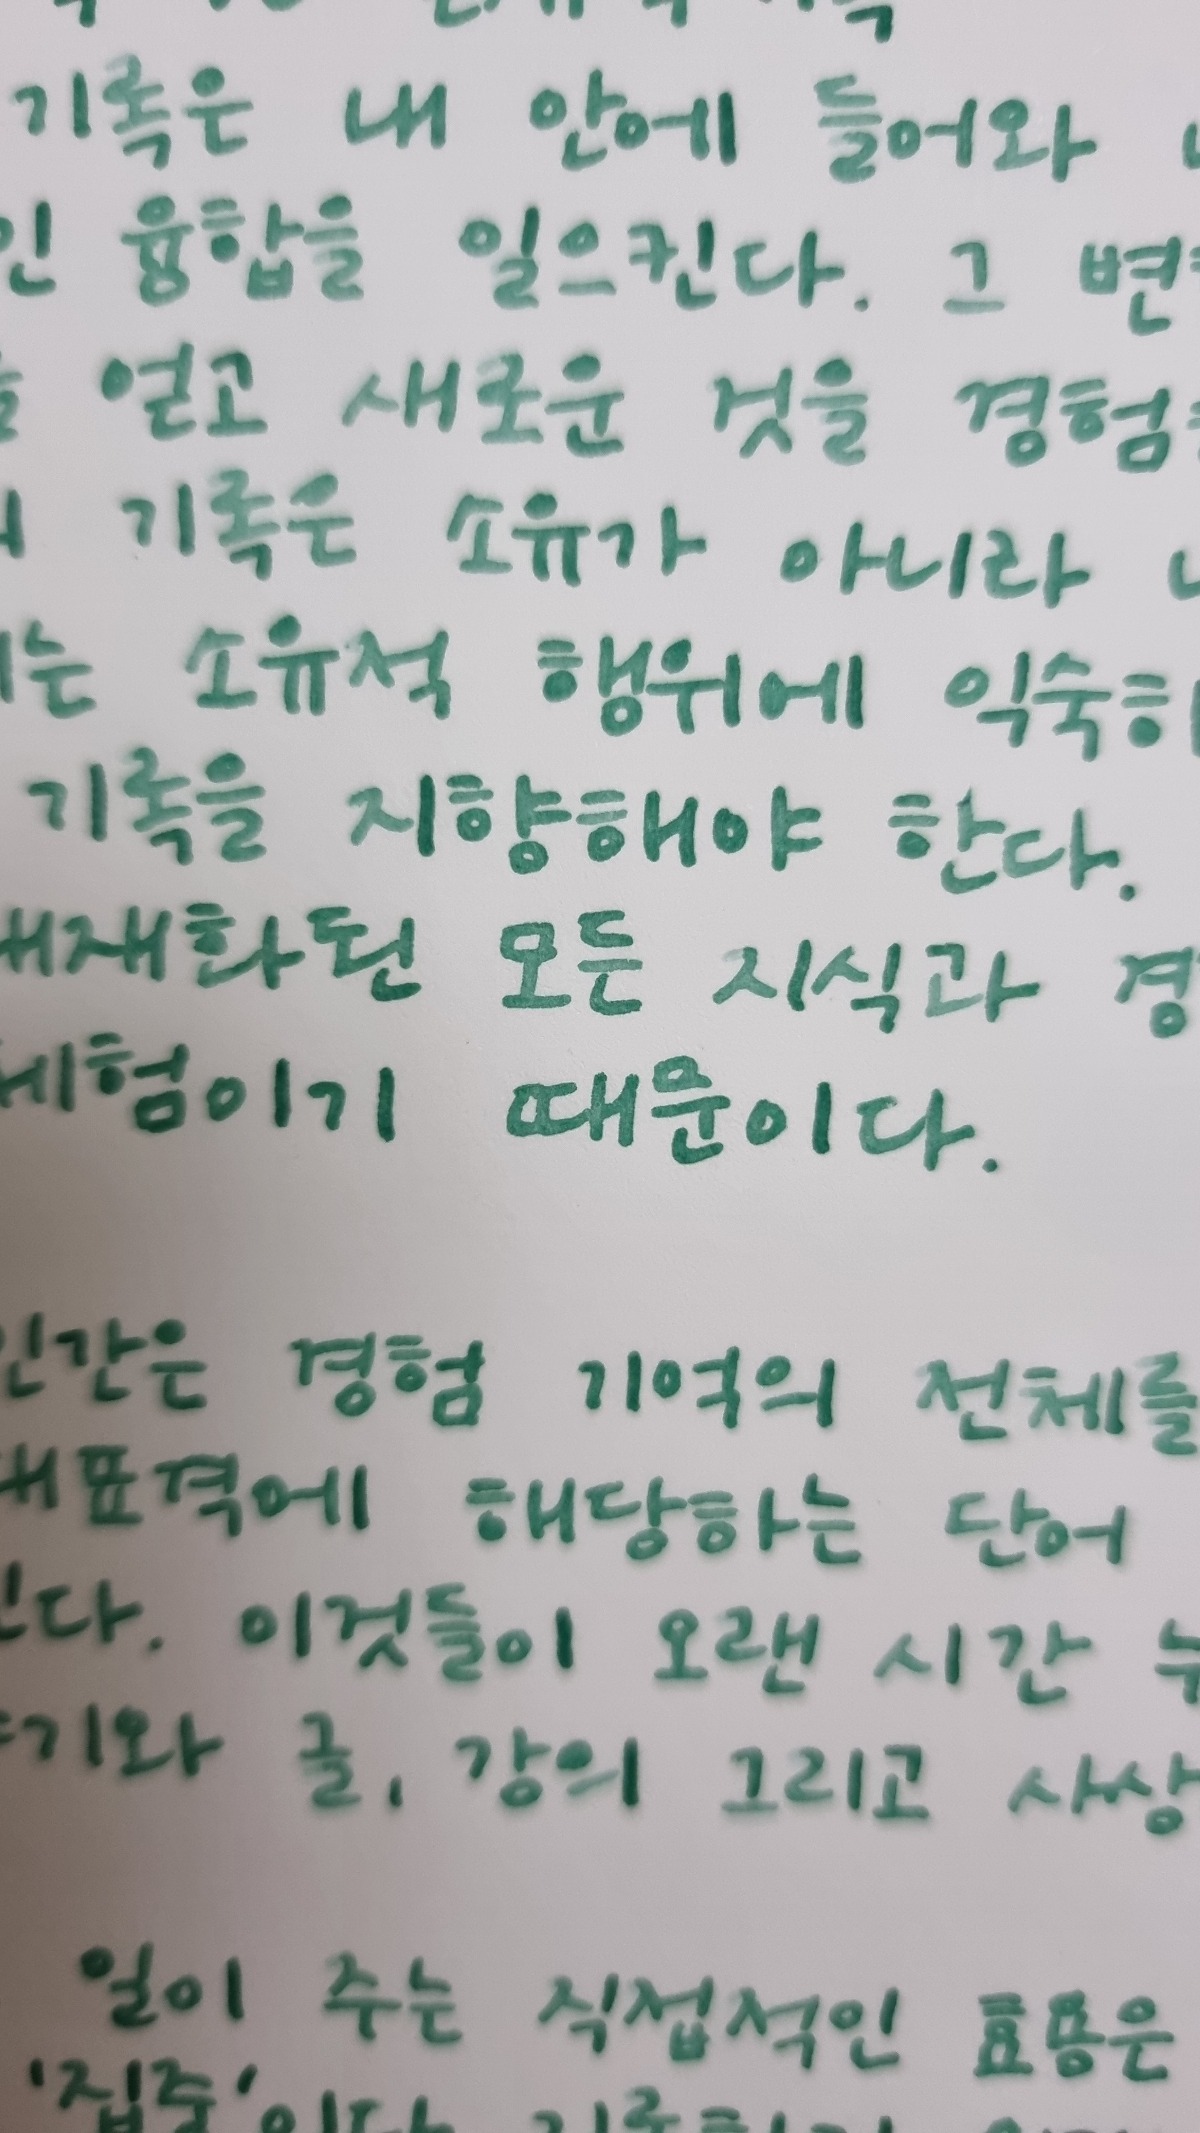 기록은 내 안에 들어와
인 융합을 일으킨다. 그 변
얻고 새로운 것을 경험
기록은 소유가 아니라
는 소유적 행위에 익숙하
기록을 지향해야 한다.
내재화된 모든 지식과 경
체험이기 때문이다.
인간은 경험 기억의 전체를
대표격에 해당하는 단어
다. 이것들이 오랜 시간
기와 글, 강의 그리고 사상
일이 주는 직접적인 효용은
'집중'이다